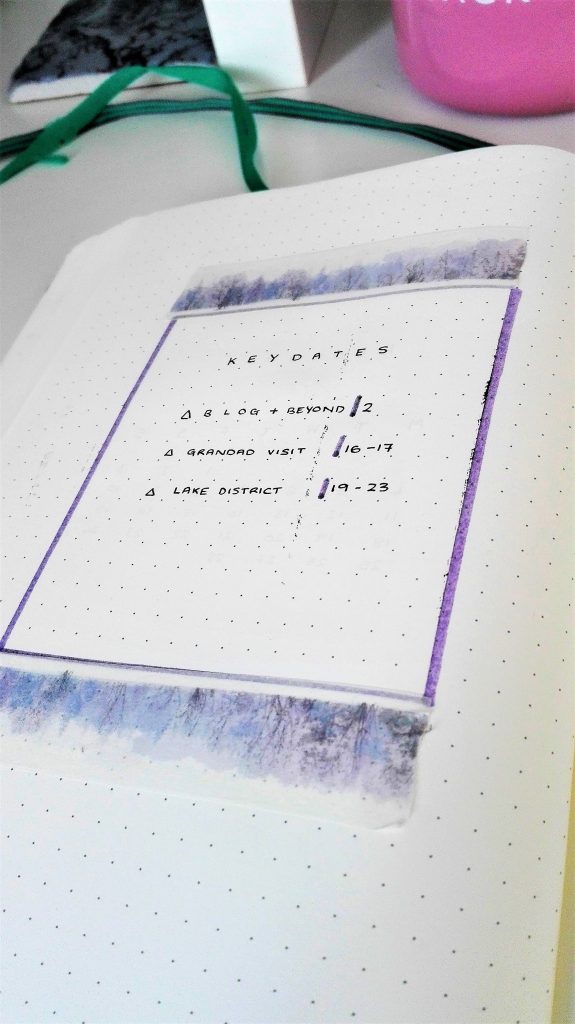 KEY DATES
Δ BLOG + BEYOND / 2
Δ GRANDAD VISIT / 16-17
Δ LAKE DISTRICT / 19-23